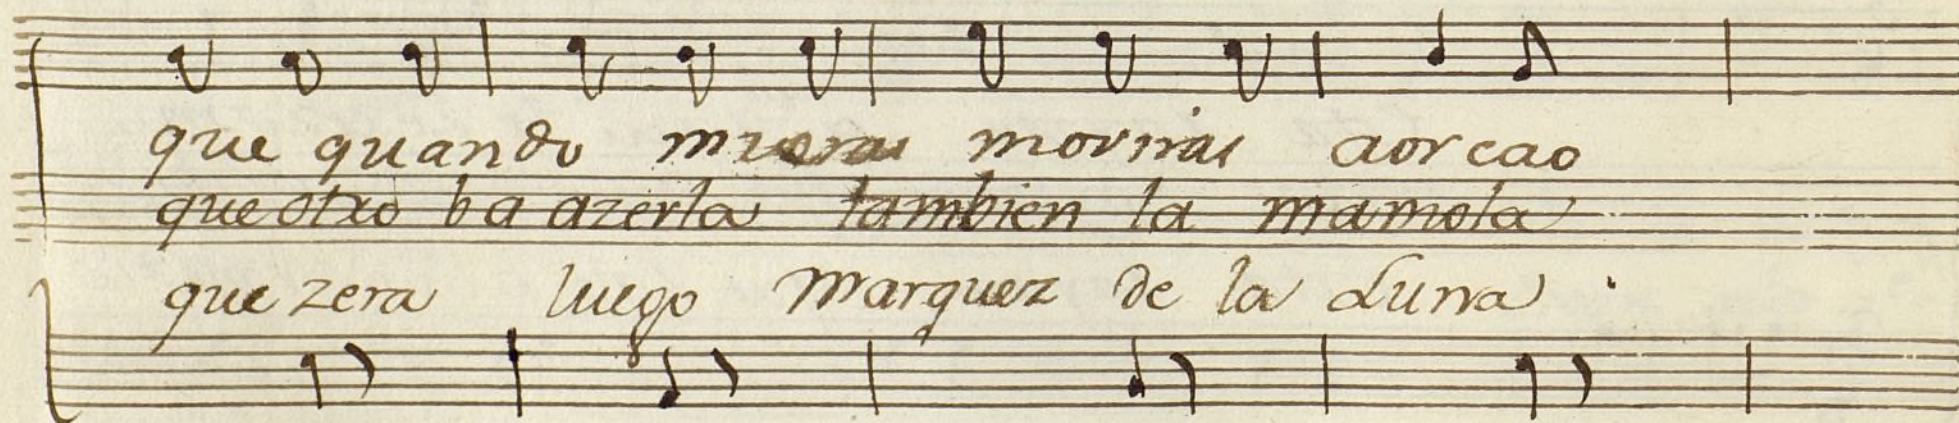 que quando mueras morriras aorcao
que otro ba azerla tambien la mamola
que zera luego Marquez de la Luna